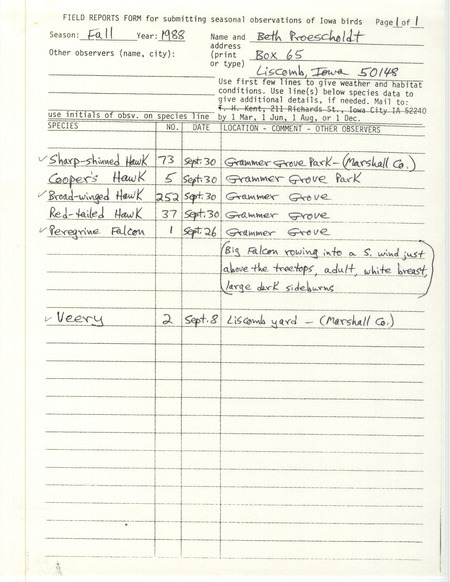 FIELD REPORTS FORM for submitting seasonal observations of Iowa birds Page 1 of 1
Season: Fall Year: 1988 Name and Beth Proescholdt
address
Other observers (name, city): (print Box 65
or type)
Liscomb, Iowa 50148
Use first few lines to give weather and habitat
conditions. Use line(s) below species data to
give additional details, if needed. Mail to:
T. H. Kent, 211 Richards St., Iowa City IA 52240
use initials of obsv. on species line by 1 Mar, 1 Jun, 1 Aug, or 1 Dec.
SPECIES NO. DATE LOCATION - COMMENT - OTHER OBSERVERS
✓ Sharp-shinned Hawk 73 Sept. 30 Grammer Grove Park - (Marshall Co.)
Cooper's Hawk 5 Sept. 30 Grammer Grove Park
✓ Broad-winged Hawk 252 Sept. 30 Grammer Grove
Red-tailed Hawk 37 Sept. 30 Grammer Grove
✓ Peregrine Falcon 1 Sept. 26 Grammer Grove
(Big Falcon rowing into a S. wind just
above the treetops, adult, white breast,
large dark sideburns)
✓ Veery 2 Sept. 8 Liscomb yard - (Marshall Co.)